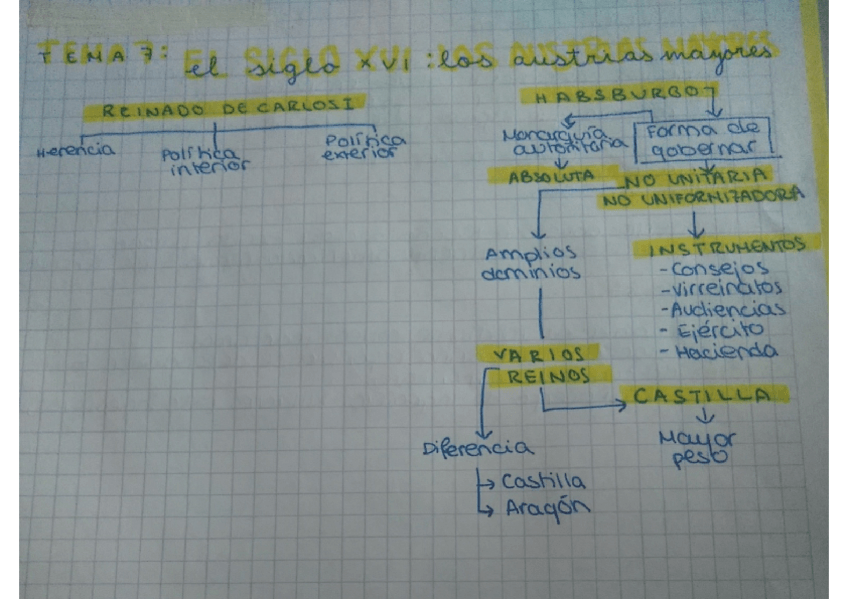 TEMA 7: el siglo XVI: los austrias mayores
REINADO DE CARLOS I
Herencia
Política
interior
Política
exterior
HABSBURGO
Monarquía
autoritaria
Forma de
gobernar
ABSOLUTA
NO UNITARIA
NO UNIFORMIZADORA
Amplios
dominios
INSTRUMENTOS
-Consejos
-Virreinatos
-Audiencias
- Ejército
- Hacienda
VARIOS
REINOS
CASTILLA
Mayor
peso
Diferencia
Castilla
Aragón